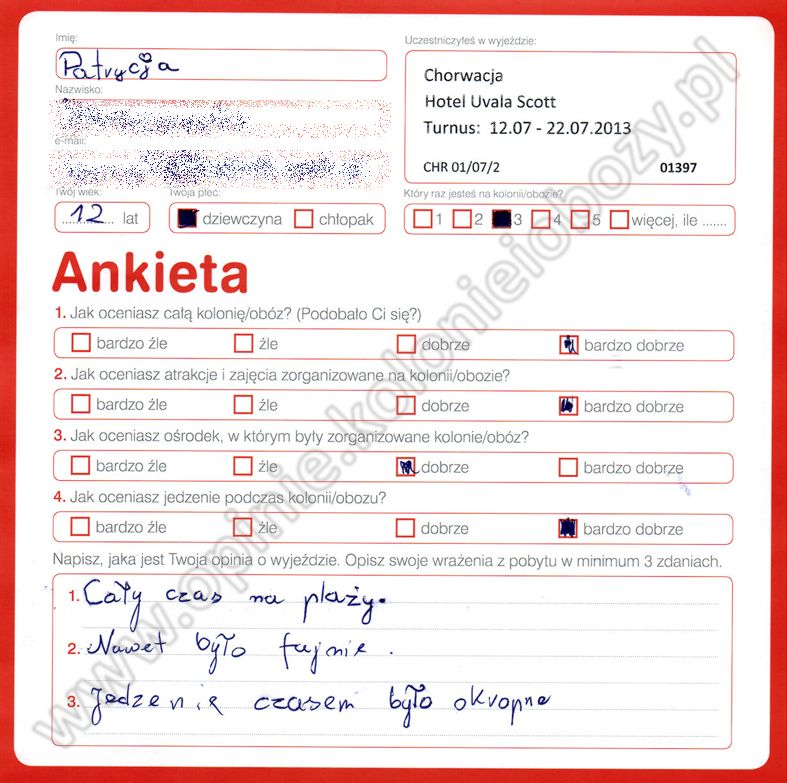 Imię:
Patrycja
Nazwisko:
e-mail:
Twój wiek:
12 lat
Twoja płeć:
dziewczyna chłopak
Uczestniczyłeś w wyjeździe:
Chorwacja
Hotel Uvala Scott
Turnus: 12.07 - 22.07.2013
CHR 01/07/2 01397
Który raz jesteś na kolonii/obozie?
1 2 3 4 5 więcej, ile .......
Ankieta
1. Jak oceniasz całą kolonię/obóz? (Podobało Ci się?)
bardzo źle źle dobrze bardzo dobrze
2. Jak oceniasz atrakcje i zajęcia zorganizowane na kolonii/obozie?
bardzo źle źle dobrze bardzo dobrze
3. Jak oceniasz ośrodek, w którym były zorganizowane kolonie/obóz?
bardzo źle źle dobrze bardzo dobrze
4. Jak oceniasz jedzenie podczas kolonii/obozu?
bardzo źle źle dobrze bardzo dobrze
Napisz, jaka jest Twoja opinia o wyjeździe. Opisz swoje wrażenia z pobytu w minimum 3 zdaniach.
1. Cały czas na plaży.
2. Nawet było fajnie.
3. Jedzenie czasem było okropne
www.opinie.kolonieiobozy.pl